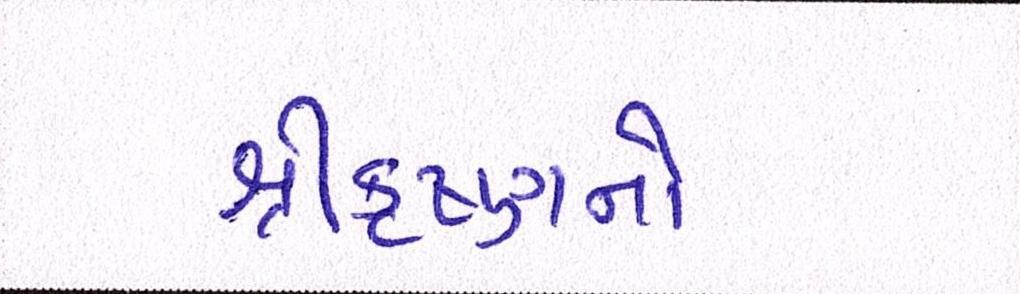 શ્રીકૃષ્ણનો